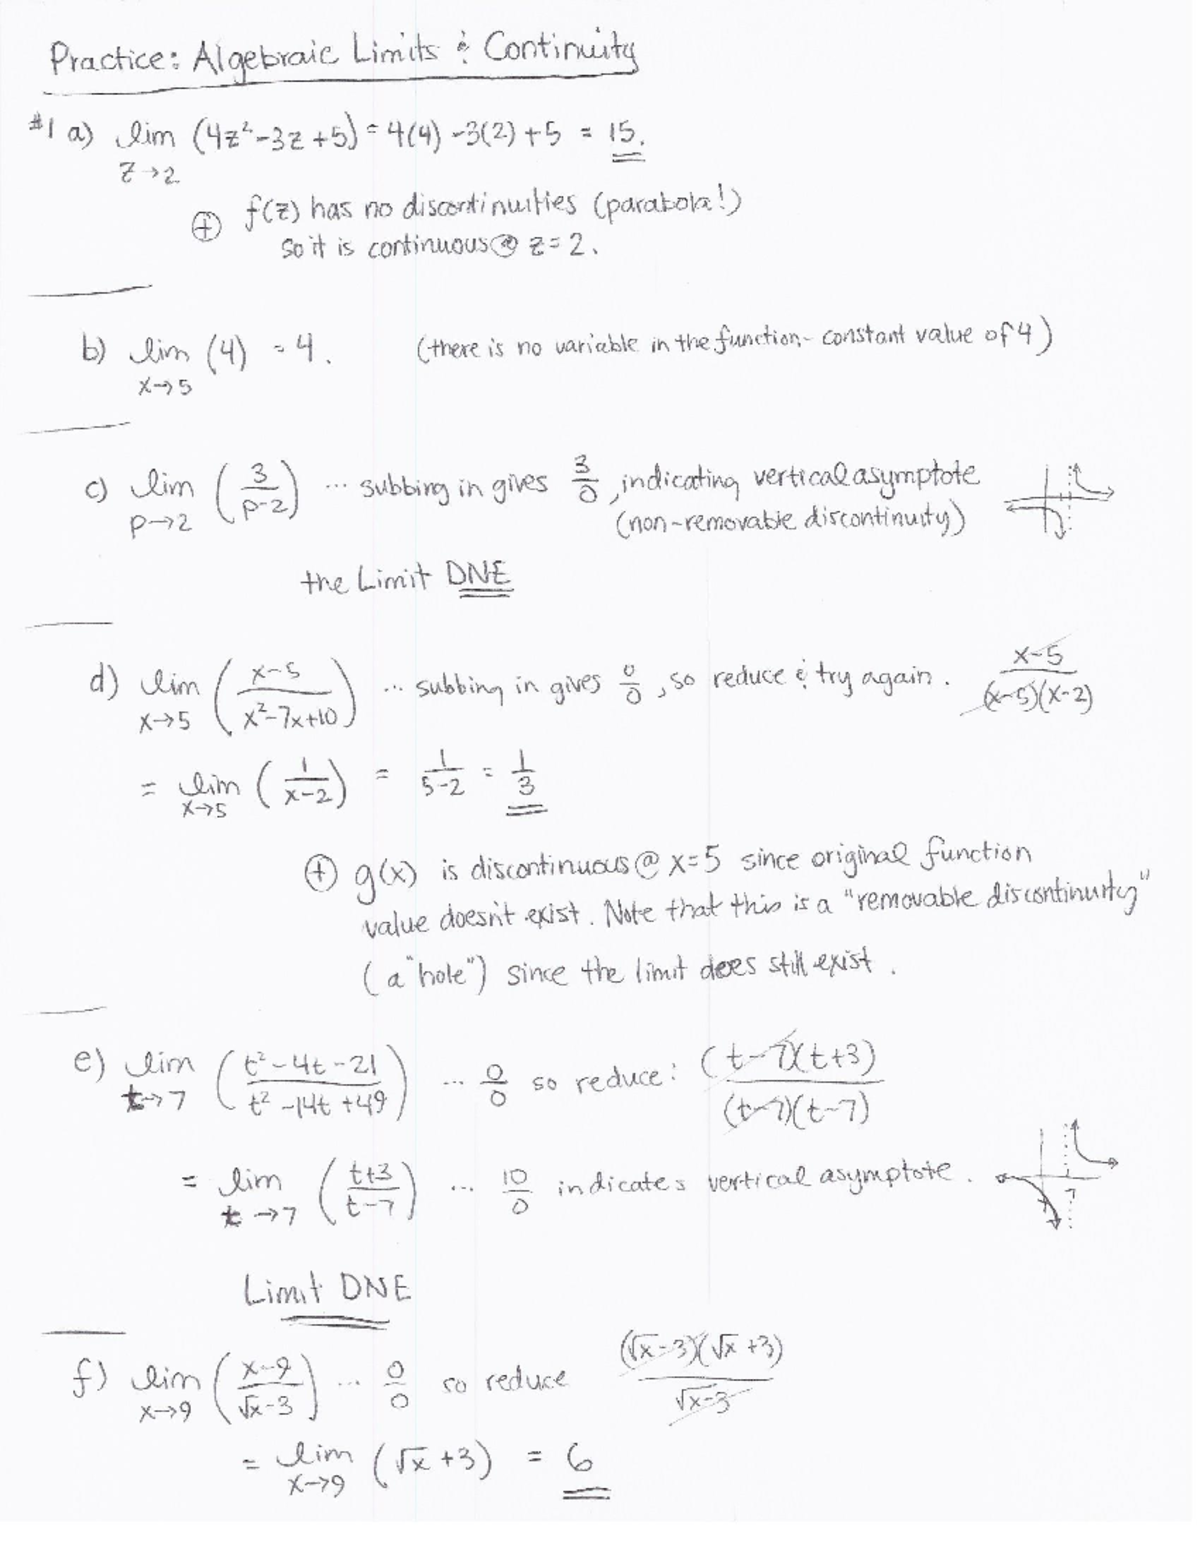 Practice: Algebraic Limits & Continuity
#1 a) lim (4z²-3z+5) = 4(4) -3(2) +5 = 15.
z→2
⊕ f(z) has no discontinuities (parabola!)
so it is continuous @ z=2.
b) lim (4) = 4. (there is no variable in the function - constant value of 4)
x→5
c) lim (3/(p-2)) ... subbing in gives 3/0, indicating vertical asymptote
p→2 (non-removable discontinuity)
the Limit DNE
d) lim ((x-5)/(x²-7x+10)) ... subbing in gives 0/0, so reduce & try again. (x-5)/((x-5)(x-2))
x→5
= lim (1/(x-2)) = 1/(5-2) = 1/3
x→5
⊕ g(x) is discontinuous @ x=5 since original function
value doesn't exist. Note that this is a "removable discontinuity"
(a "hole") since the limit does still exist.
e) lim ((t²-4t-21)/(t²-14t+49)) ... 0/0 so reduce: ((t-7)(t+3))/((t-7)(t-7))
t→7
= lim ((t+3)/(t-7)) ... 10/0 indicates vertical asymptote.
t→7 7
Limit DNE
f) lim ((x-9)/(√x-3)) ... 0/0 so reduce ((√x-3)(√x+3))/(√x-3)
x→9
= lim (√x+3) = 6
x→9